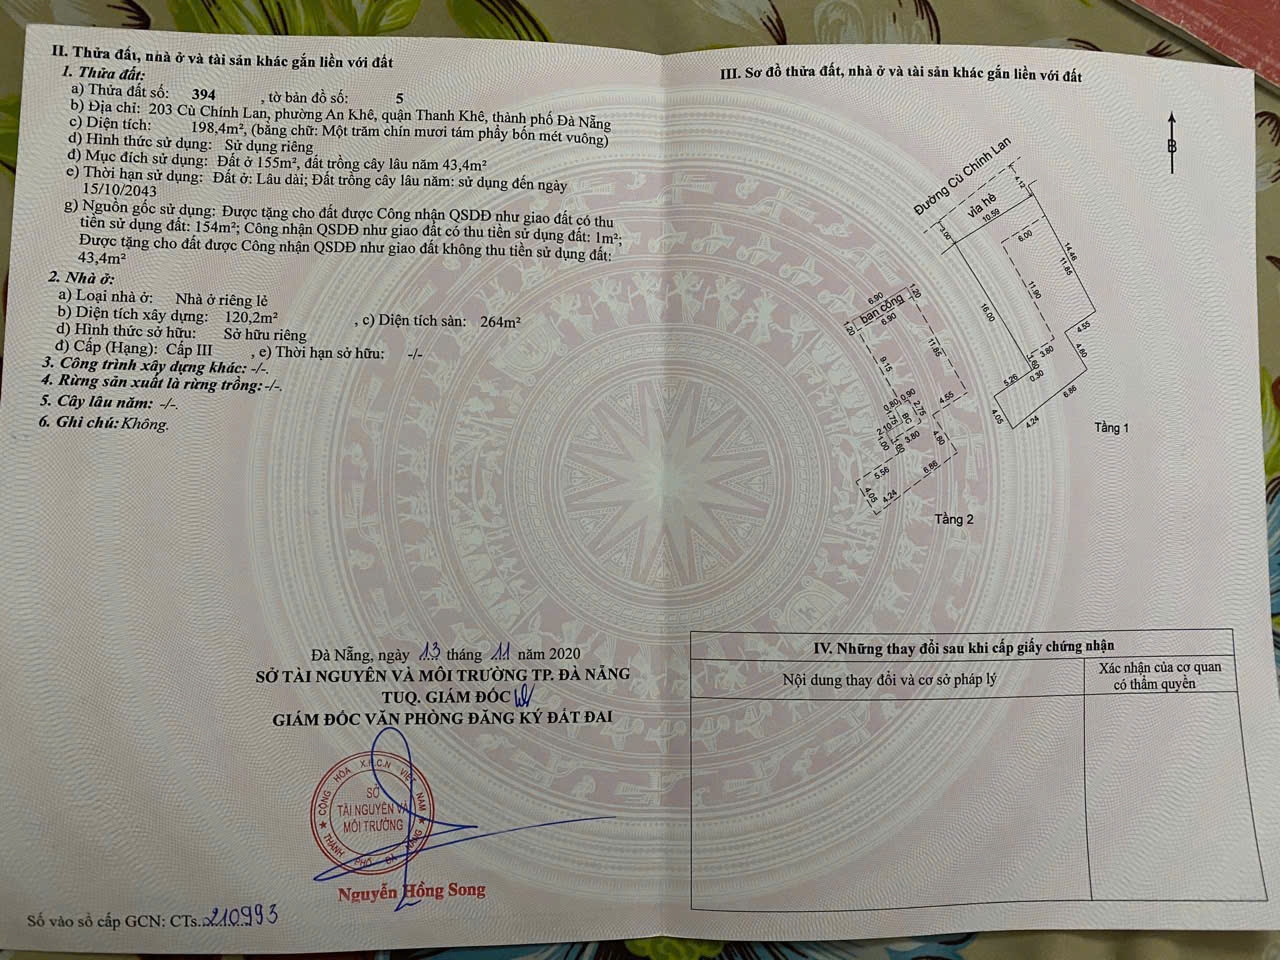 II. Thửa đất, nhà ở và tài sản khác gắn liền với đất
1. Thửa đất:
a) Thửa đất số: 394 , tờ bản đồ số: 5
b) Địa chỉ: 203 Cù Chính Lan, phường An Khê, quận Thanh Khê, thành phố Đà Nẵng
c) Diện tích: 198,4m², (bằng chữ: Một trăm chín mươi tám phẩy bốn mét vuông)
d) Hình thức sử dụng: Sử dụng riêng
đ) Mục đích sử dụng: Đất ở 155m², đất trồng cây lâu năm 43,4m²
e) Thời hạn sử dụng: Đất ở: Lâu dài; Đất trồng cây lâu năm: sử dụng đến ngày
15/10/2043
g) Nguồn gốc sử dụng: Được tặng cho đất được Công nhận QSDĐ như giao đất có thu
tiền sử dụng đất: 154m²; Công nhận QSDĐ như giao đất có thu tiền sử dụng đất: 1m²;
Được tặng cho đất được Công nhận QSDĐ như giao đất không thu tiền sử dụng đất:
43,4m²
2. Nhà ở:
a) Loại nhà ở: Nhà ở riêng lẻ
b) Diện tích xây dựng: 120,2m² , c) Diện tích sàn: 264m²
d) Hình thức sở hữu: Sở hữu riêng
đ) Cấp (Hạng): Cấp III , e) Thời hạn sở hữu: -/-
3. Công trình xây dựng khác: -/-.
4. Rừng sản xuất là rừng trồng: -/-.
5. Cây lâu năm: -/-.
6. Ghi chú: Không.
Đà Nẵng, ngày 13 tháng 11 năm 2020
SỞ TÀI NGUYÊN VÀ MÔI TRƯỜNG TP. ĐÀ NẴNG
TUQ. GIÁM ĐỐC
GIÁM ĐỐC VĂN PHÒNG ĐĂNG KÝ ĐẤT ĐAI
CỘNG HÒA X.H.C.N VIỆT NAM
SỞ
TÀI NGUYÊN VÀ
MÔI TRƯỜNG
THÀNH PHỐ ĐÀ NẴNG
Nguyễn Hồng Song
Số vào sổ cấp GCN: CTs.210993
III. Sơ đồ thửa đất, nhà ở và tài sản khác gắn liền với đất
B
Đường Cù Chính Lan
4.12
vỉa hè
10.59
3.00
6.00
14.46
11.85
11.90
16.00
4.55
3.80
4.80
.60
0.30
5.26
6.86
4.05
4.24
Tầng 1
6.90
1.20
ban công
6.90
1.20
11.85
9.15
0.80
0.90
4.55
2.75
1.75
BC
2.10
3.80
4.80
1.00
.60
5.56
6.86
4.05
4.24
Tầng 2
IV. Những thay đổi sau khi cấp giấy chứng nhận
Nội dung thay đổi và cơ sở pháp lý
Xác nhận của cơ quan
có thẩm quyền